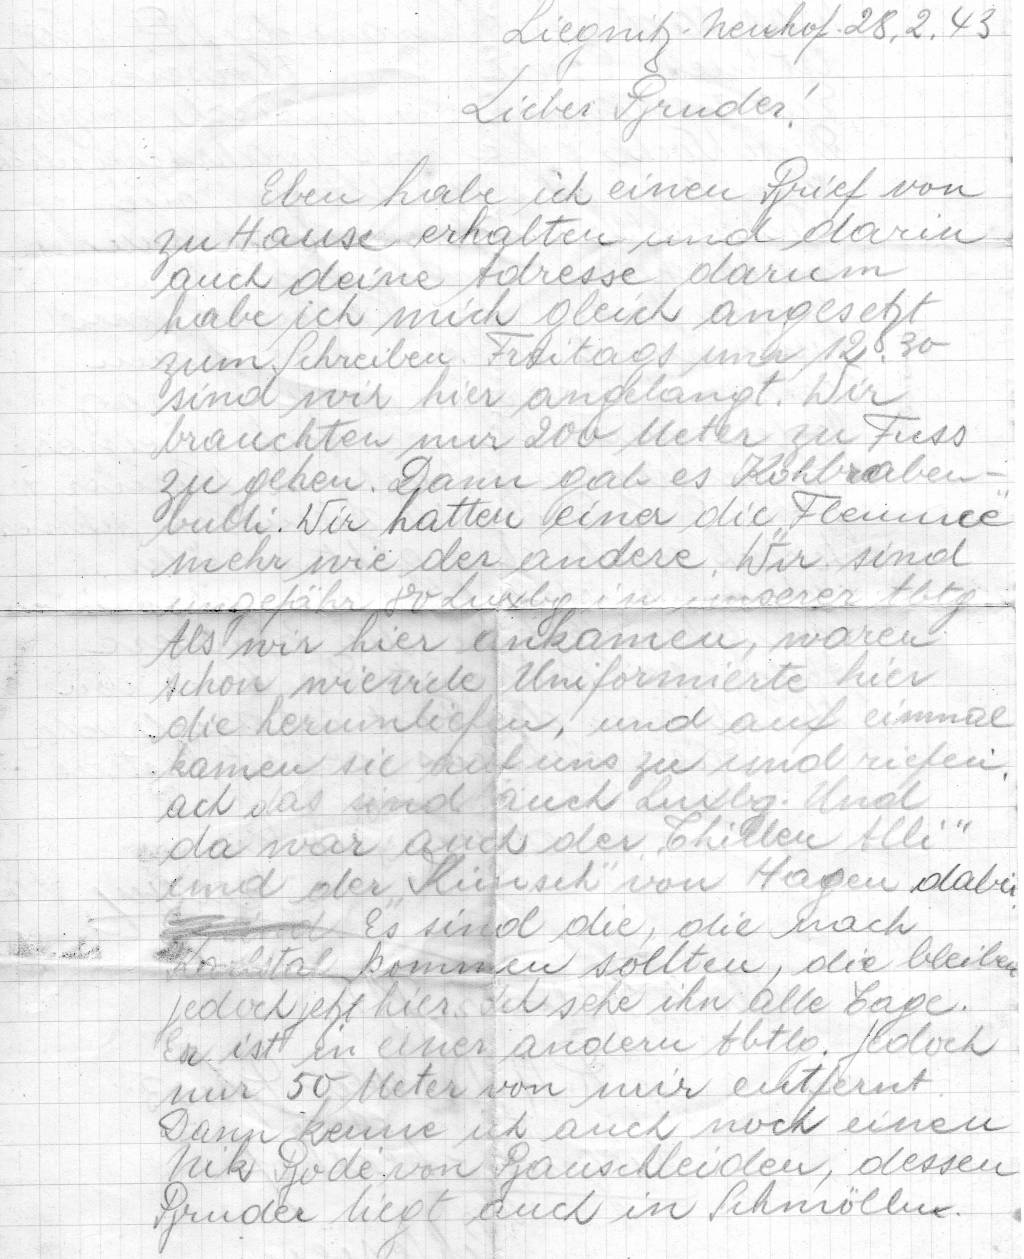 Liegnitz-Neuhof 28.2.43
Lieber Bruder!
Eben habe ich einen Brief von
zu Hause erhalten und darin
auch deine Adresse darum
habe ich mich gleich angesetzt
zum Schreiben. Freitags um 12.30
sind wir hier angelangt. Wir
brauchten nur 200 Meter zu Fuss
zu gehen. Dann gab es Kohlraben-
bulli. Wir hatten einer die "Flemme"
mehr wie der andere. Wir sind
ungefähr Luxbg in unserer Abtg
Als wir hier ankamen, waren
schon wieviele Uniformierte hier
die herumliefen, und auf einmal
kamen sie auf uns zu und riefen,
ach das sind auch Luxbg. Und
da war auch der "Alli"
und der von Hagen dabei
Es sind die, die nach
kommen sollten, die bleiben
jedoch jetzt hier. Ich sehe ihn alle Tage.
Er ist in einer andern Abtlg. jedoch
nur 50 Meter von mir entfernt.
Dann kenne ich auch noch einen
Nik Bodé von Bauschleiden, dessen
Bruder liegt auch in Schmölln.